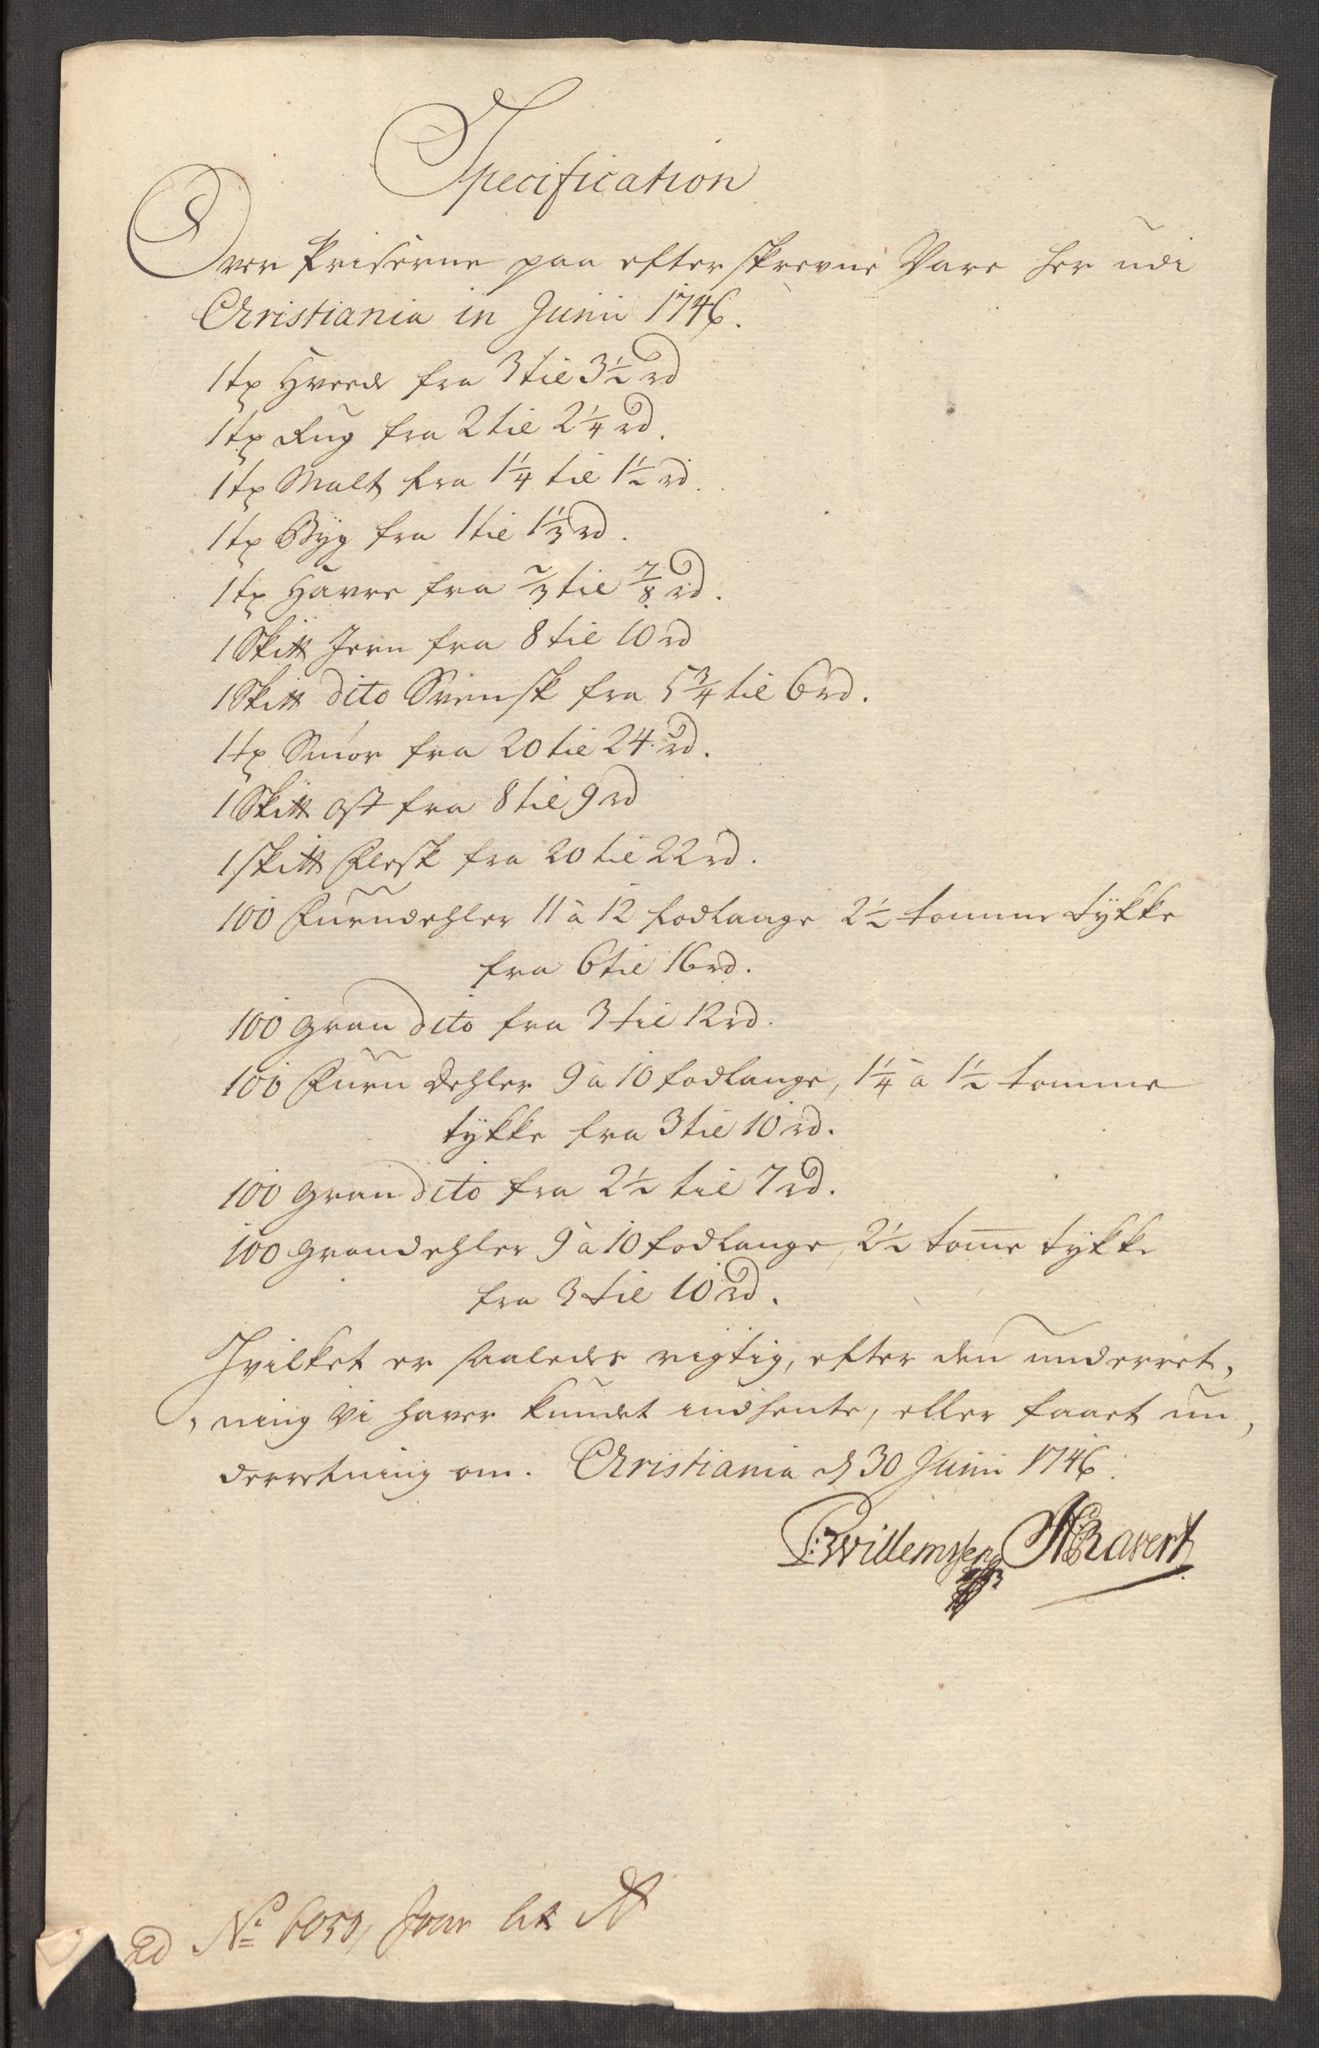 Specification
Over Priserne paa efterskrevne Vare her udi
Christiania in Junii 1746.
1 tr Hvede fra 3 til 3½ rd
1 tr Rug fra 2 til 2¼ rd.
1 tr Malt fra 1¼ til 1½ rd.
1 tr Byg fra 1 til 1⅓ rd.
1 tr Havre fra ⅔ til ⅞ rd.
1 Skitt Jern fra 8 til 10 rd
1 Skitt dito Svensk fra 5¾ til 6 rd.
1 tr Smør fra 20 til 24 rd.
1 Skitt Ost fra 8 til 9 rd
1 skitt Flesk fra 20 til 22 rd.
100 Furudehler 11 à 12 fodlange 2½ tomme tykke
fra 6 til 16 rd.
100 gran dito fra 3 til 12 rd.
100 Furu dehler 9 à 10 fodlange, 1¼ à 1½ tomme
tykke fra 3 til 10 rd.
100 gran dito fra 2½ til 7 rd.
100 grandehler 9 à 10 fodlange, 2½ tom̅e tykke
fra 3 til 10 rd.
Hvilket er saaledes rigtig, efter den underret,
,ning vi haver kundet indhente, eller faaet un,
derretning om. Christiania d 30 Junii 1746.
Willemssen Ravert
ad No 6050, Jour Lit